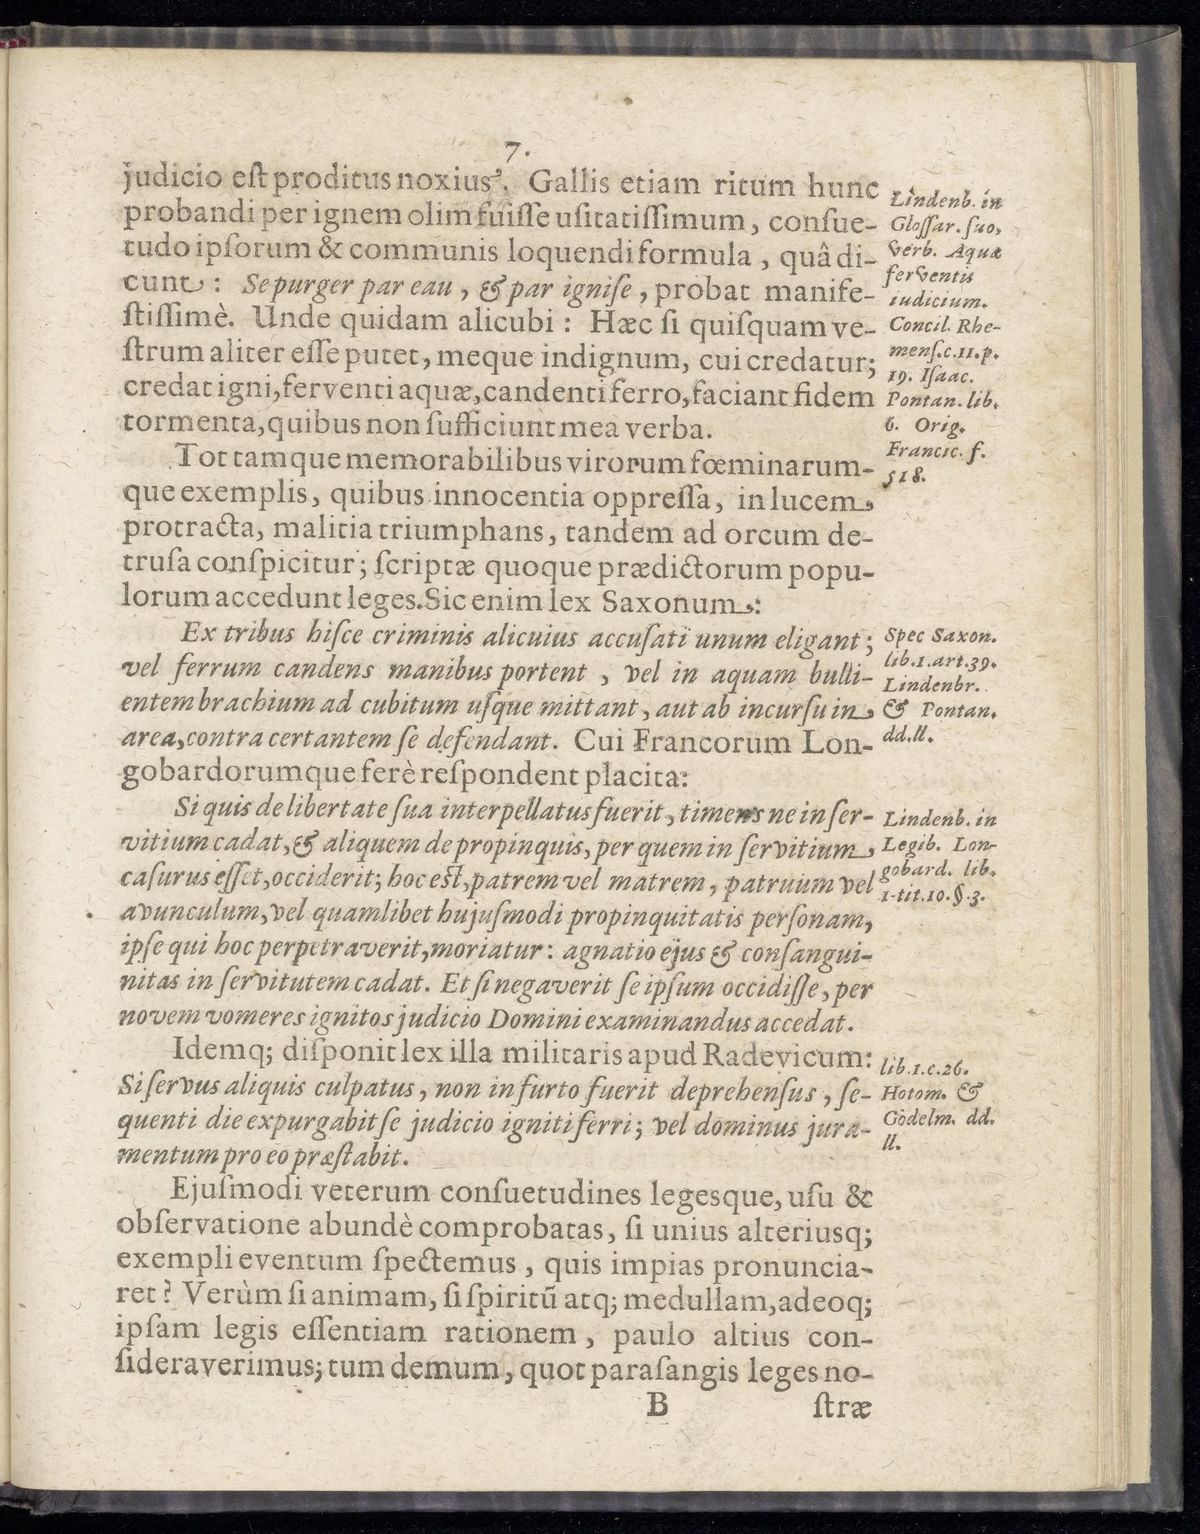 7.
judicio eſt proditus noxius. Gallis etiam ritum hunc
probandi per ignem olim fuiſſe uſitatiſſimum, conſue-
tudo ipſorum & communis loquendi formula, quâ di-
cunt: Se purger par eau, & par igniſe, probat manife-
ſtiſſimè. Unde quidam alicubi: Hæc ſi quiſquam ve-
ſtrum aliter eſſe putet, meque indignum, cui credatur;
credat igni, ferventi aquæ, candenti ferro, faciant fidem
tormenta, quibus non ſufficiunt mea verba.
Lindenb. in
Gloſſar. ſuo,
verb. Aquæ
ferventis
iudicium.
Concil. Rhe-
menſ.c.11.p.
19. Iſaac.
Pontan. lib.
6. Orig.
Francic. f.
518.
Tot tamque memorabilibus virorum fœminarum-
que exemplis, quibus innocentia oppreſſa, in lucem
protracta, malitia triumphans, tandem ad orcum de-
truſa conſpicitur; ſcriptæ quoque prædictorum popu-
lorum accedunt leges. Sic enim lex Saxonum:
Ex tribus hiſce criminis alicuius accuſati unum eligant;
vel ferrum candens manibus portent, vel in aquam bulli-
entem brachium ad cubitum uſque mittant, aut ab incurſu in
area, contra certantem ſe defendant. Cui Francorum Lon-
gobardorumque ferè reſpondent placita:
Spec Saxon.
lib.1.art.39.
Lindenbr.
& Pontan.
dd.ll.
Si quis de libertate ſua interpellatus fuerit, timens ne in ſer-
vitium cadat, & aliquem de propinquis, per quem in ſervitium
caſurus eſſet, occiderit; hoc eſt, patrem vel matrem, patruum vel
avunculum, vel quamlibet hujuſmodi propinquitatis perſonam,
ipſe qui hoc perpetraverit, moriatur: agnatio ejus & conſangui-
nitas in ſervitutem cadat. Et ſi negaverit ſe ipſum occidiſſe, per
novem vomeres ignitos judicio Domini examinandus accedat.
Lindenb. in
Legib. Lon-
gobard. lib.
1.tit.10.§.3.
Idemq; diſponit lex illa militaris apud Radevicum:
Si ſervus aliquis culpatus, non in furto fuerit deprehenſus, ſe-
quenti die expurgabit ſe judicio igniti ferri; vel dominus jura-
mentum pro eo præſtabit.
lib.1.c.26.
Hotom. &
Gödelm. dd.
ll.
Ejuſmodi veterum conſuetudines legesque, uſu &
obſervatione abundè comprobatas, ſi unius alteriusq;
exempli eventum ſpectemus, quis impias pronuncia-
ret? Verùm ſi animam, ſi ſpiritū atq; medullam, adeoq;
ipſam legis eſſentiam rationem, paulo altius con-
ſideraverimus; tum demum, quot paraſangis leges no-
B ſtræ